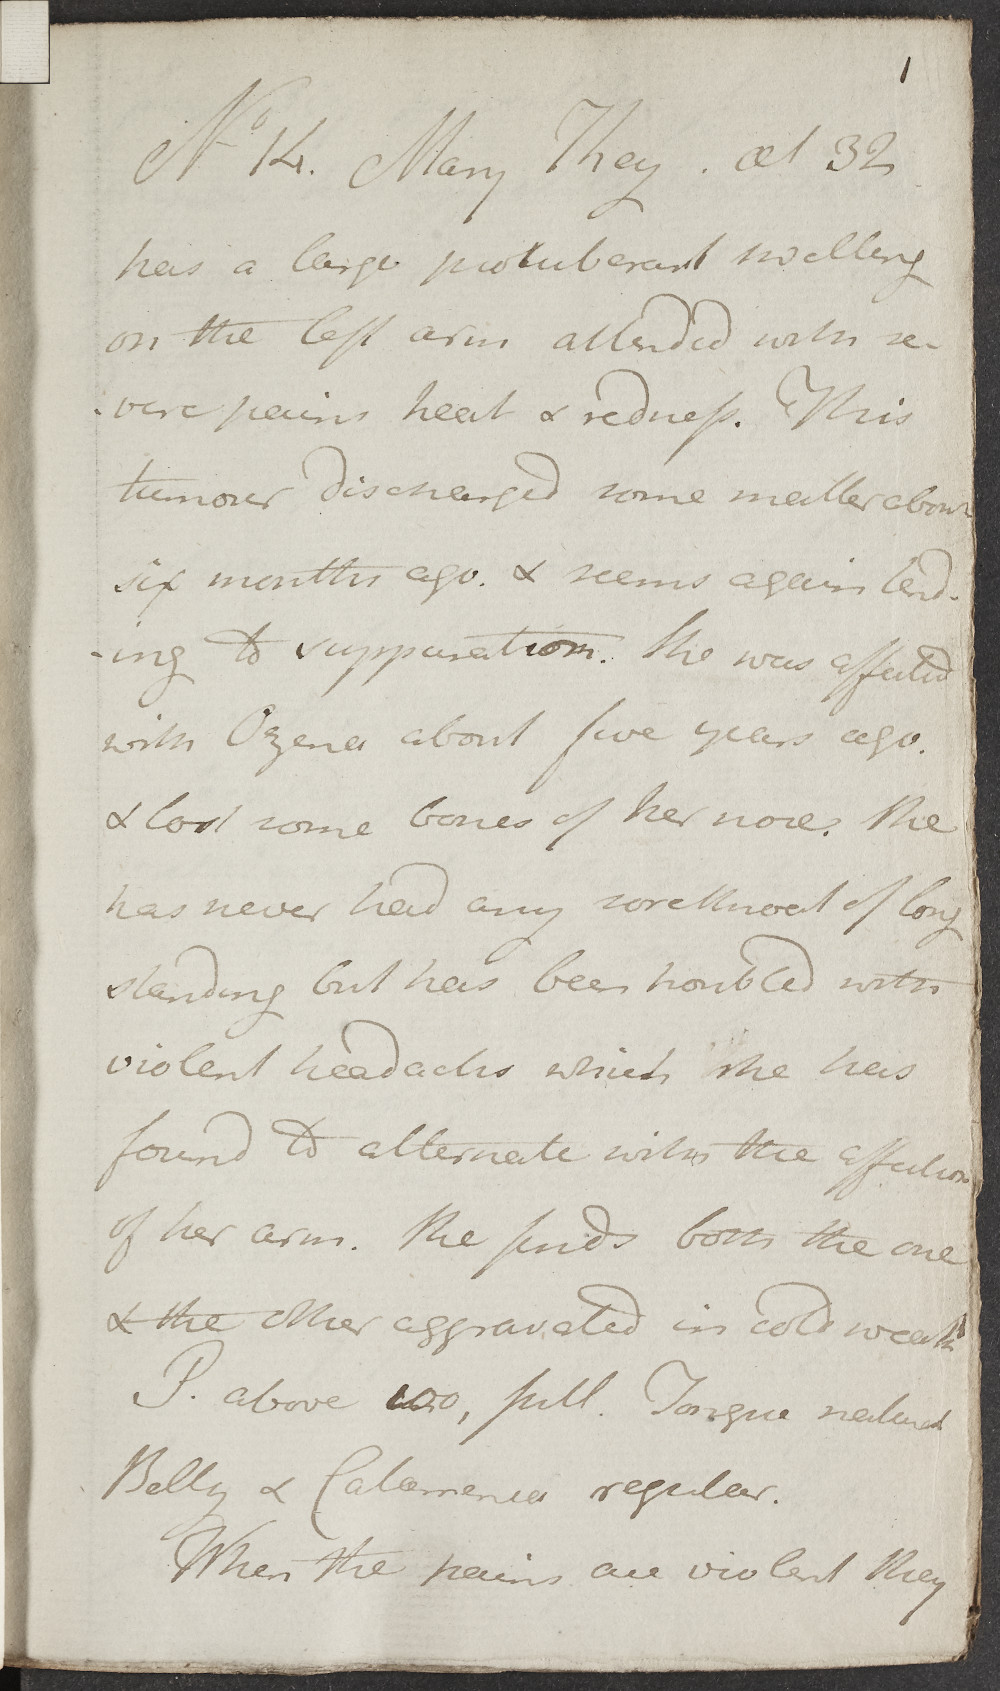 1
No 14. Mary They. æt 32
has a large protuberant swelling
on the left arm attended with se-
-vere pains heat & redness. This
tumour discharged some matter about
six months ago. & seems again tend-
-ing to suppuration. She was affected
with Ozena about five years ago.
& lost some bones of her nose. She
has never had any sorethroat of long
standing but has been troubled with
violent headachs which she has
found to alternate with the affection
of her arm. She finds both the one
& the other aggravated in cold weath
P. above 100, full. Tongue natural
Belly & Catamenia regular.
When the pains are violent they